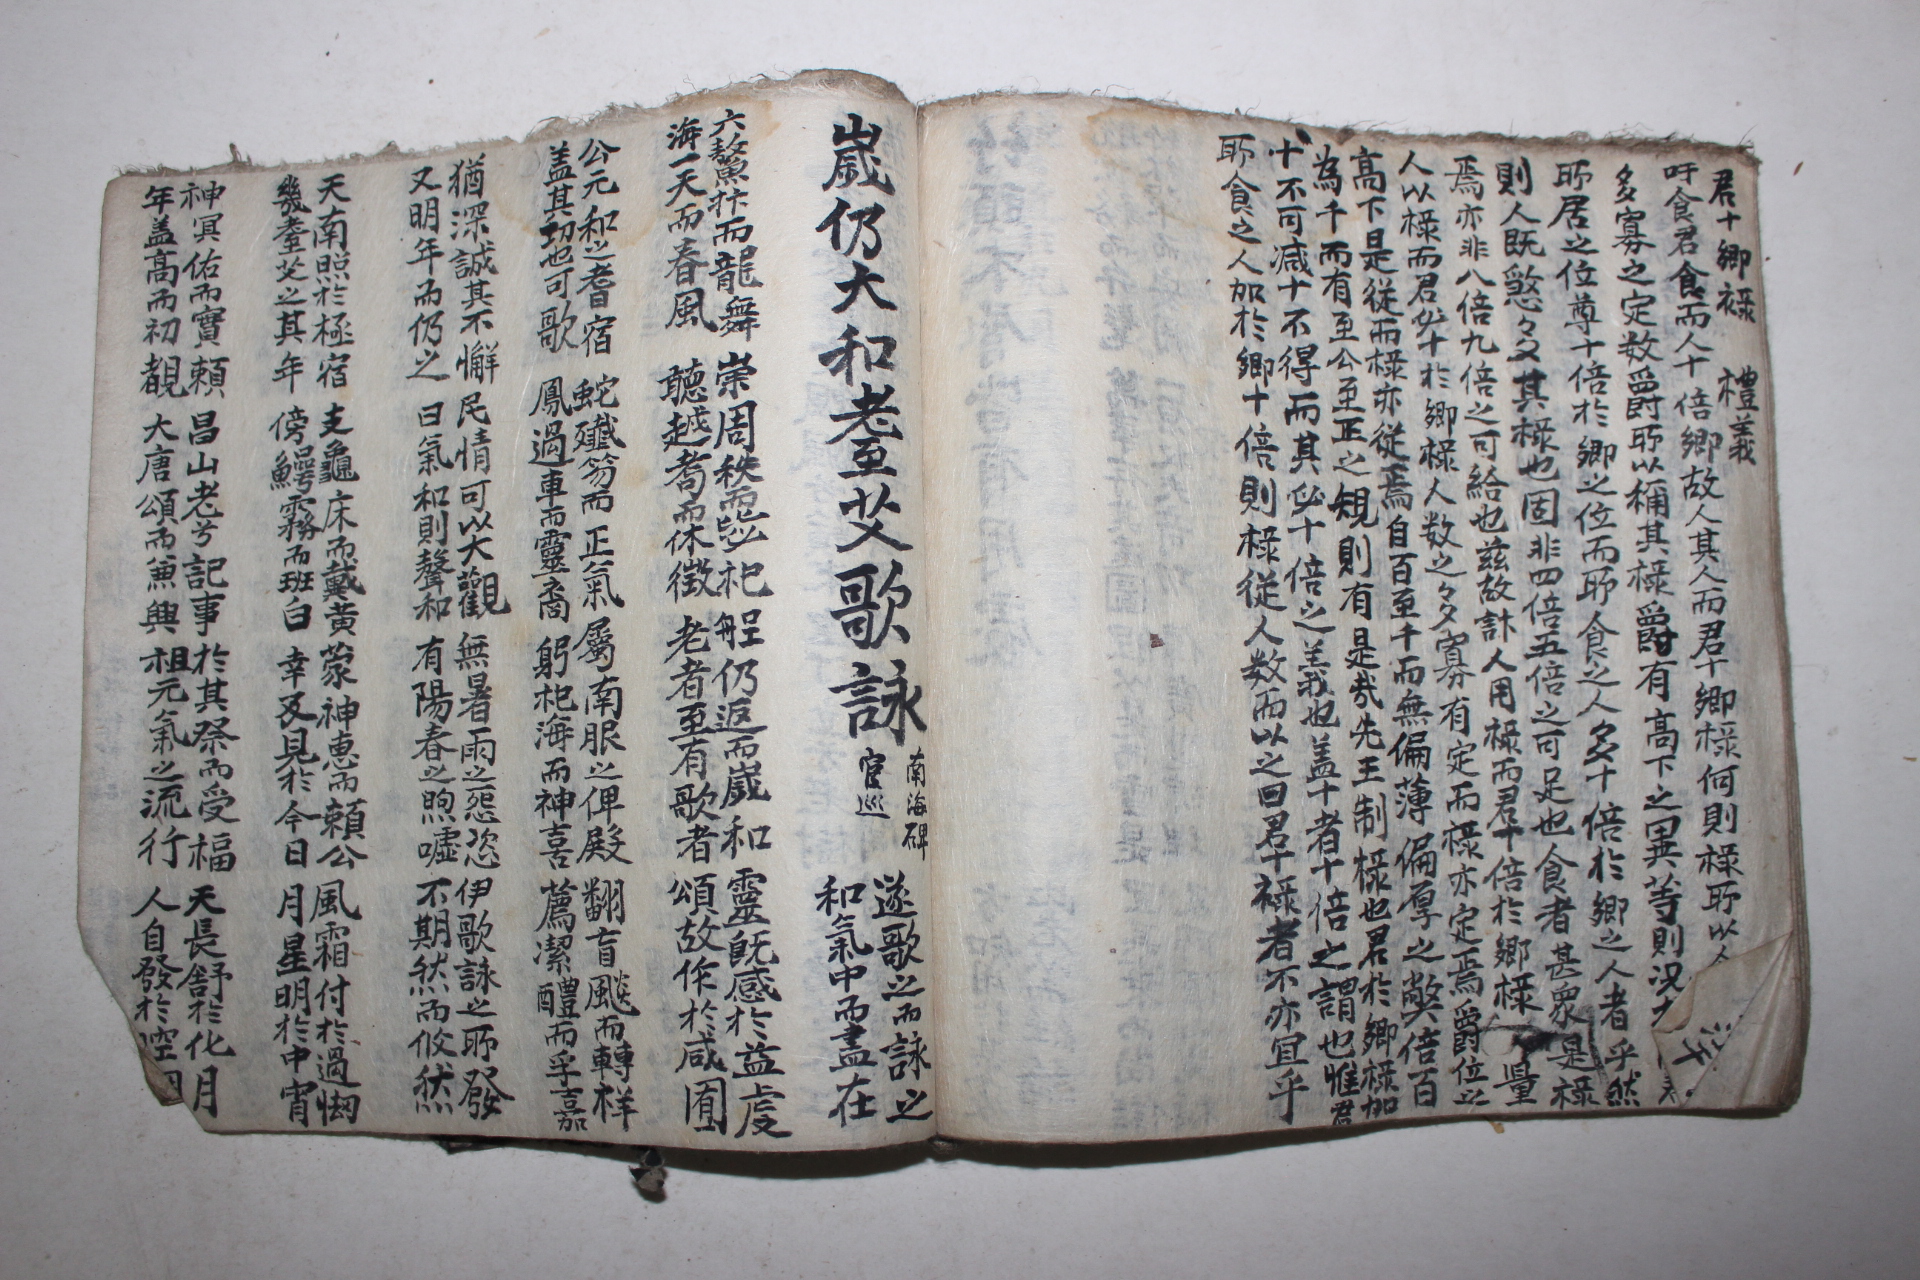 君十鄉祿 禮義
吁食君食而人十倍鄉故人其人而君十鄉祿何則祿所以人
多寡之定数爵所以稱其祿爵有高下之異等則況
所居之位尊十倍於鄉之位而所食之人多十倍於鄉之人者乎然
則人既愍々多其祿也固非四倍五倍之可足也食者甚衆是祿
焉亦非八倍九倍之可給也玆故計人用祿而君十倍於鄉祿 量
人以祿而君必十於鄉祿人数之多寡有定而祿亦定焉爵位之
高下是從而祿亦從焉自百至千而無偏薄偏厚之弊倍百
為千而有至公至正之規則有是哉先王制祿也君於鄉祿加
十不可减十不得而其必十倍之義也盖十者十倍之謂也惟君
所食之人加於鄉十倍則祿從人数而以之曰君十祿者不亦宜乎
歲仍大和老至艾歌詠 南海碑 官巡
遂歌之而詠之
和氣中而盡在
六鰲抃而龍舞 崇周秩而毖祀 舡仍返而歲和 靈旣感於益虔
海一天而春風 聽越耈而休徵 老者至有歌者 頌故作於咸囿
公元和之耆宿 蛇殲笏而正氣 屬南服之俾殿 翻盲颷而轉祥
盖其功也可歌 鳳過車而靈裔 躬祀海而神喜 薦潔醴而孚嘉
猶深誠其不懈 民情可以大觀 無暑雨之怨恣 伊歌詠之所發
又明年而仍之 曰氣和則聲和 有陽春之煦噓 不期然而攸然
天南照於極宿 支龜床而戴黄 蒙神惠而賴公 風霜付於過㥘
幾耋艾之其年 傍鱷霧而班白 幸及見於今日 月星明於中宵
神冥佑而實賴 昌山老兮記事 於其祭而受福 天長舒於化月
年盖高而初覩 大唐頌而兼興 祖元氣之流行 人自發於